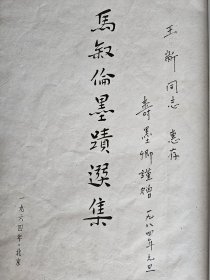 玉新同志 惠存
寿墨卿谨赠 一九八四年元旦
馬叙倫墨蹟選集
一九六四年·北京